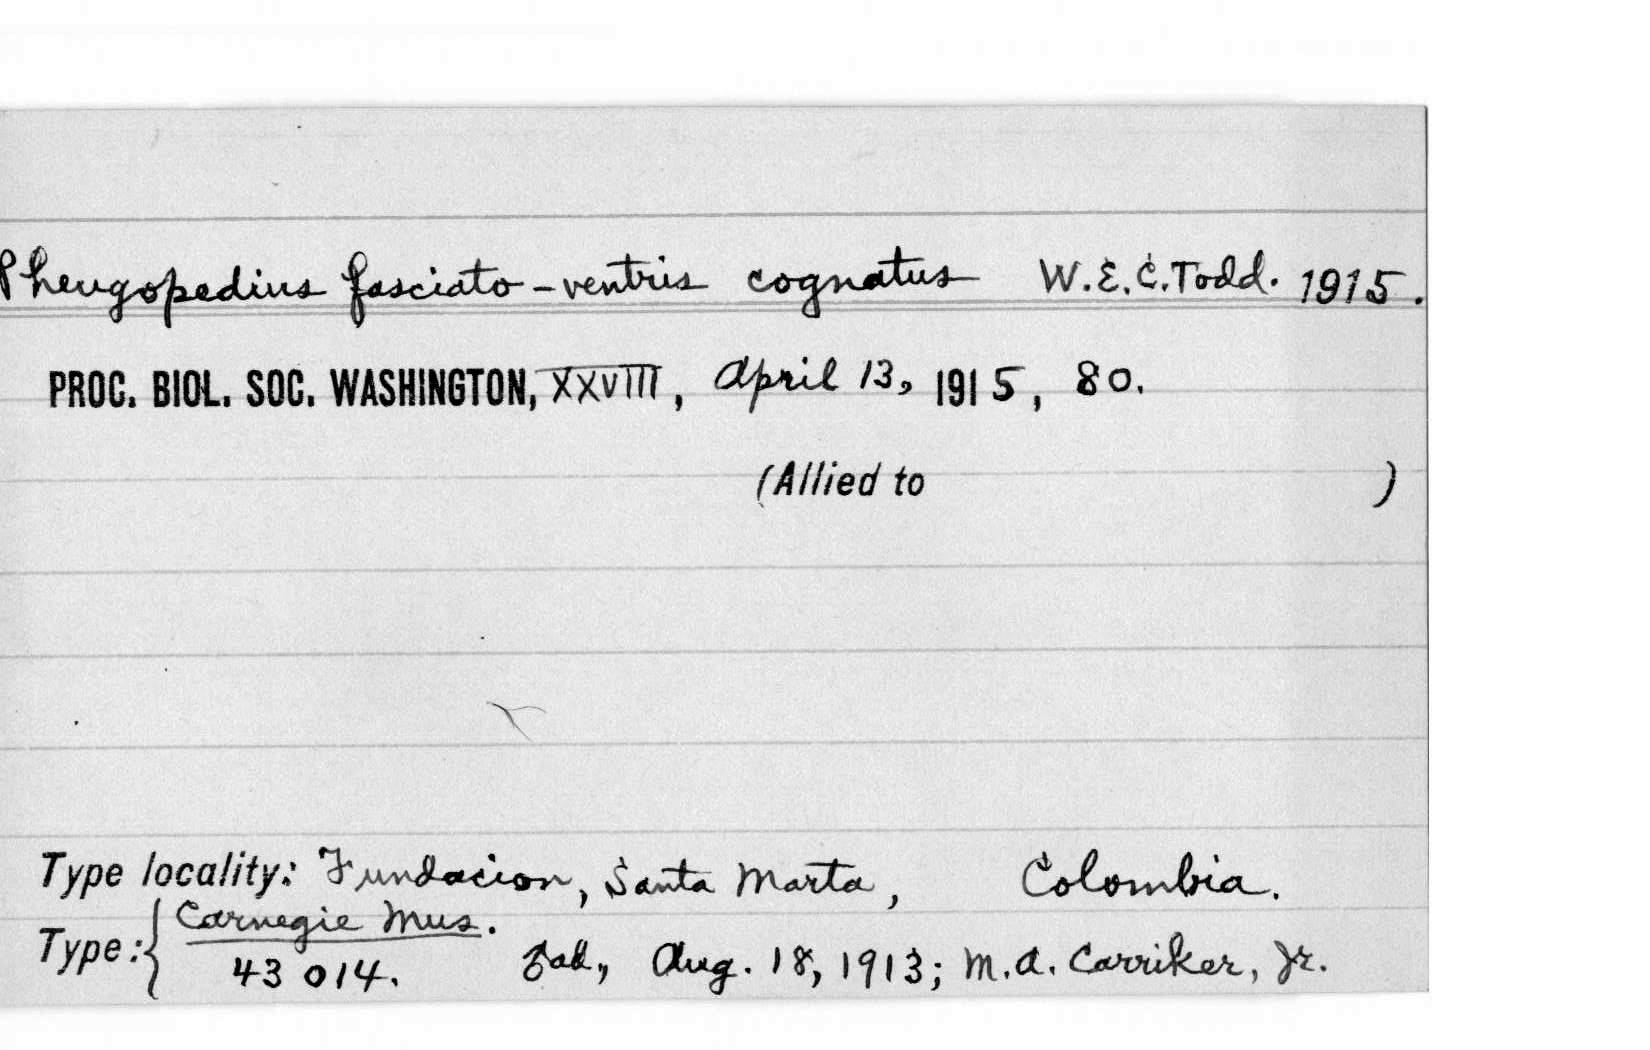 Pheugopedius fasciato-ventris cognatus W.E.C.Todd. 1915.
PROC. BIOL. SOC. WASHINGTON, XXVIII, April 13, 1915, 80.
(Allied to )
Type locality: Fundacion, Santa Marta, Colombia.
Type: { Carnegie Mus.
43 014. ad., Aug. 18, 1913; M.A. Carriker, Jr.